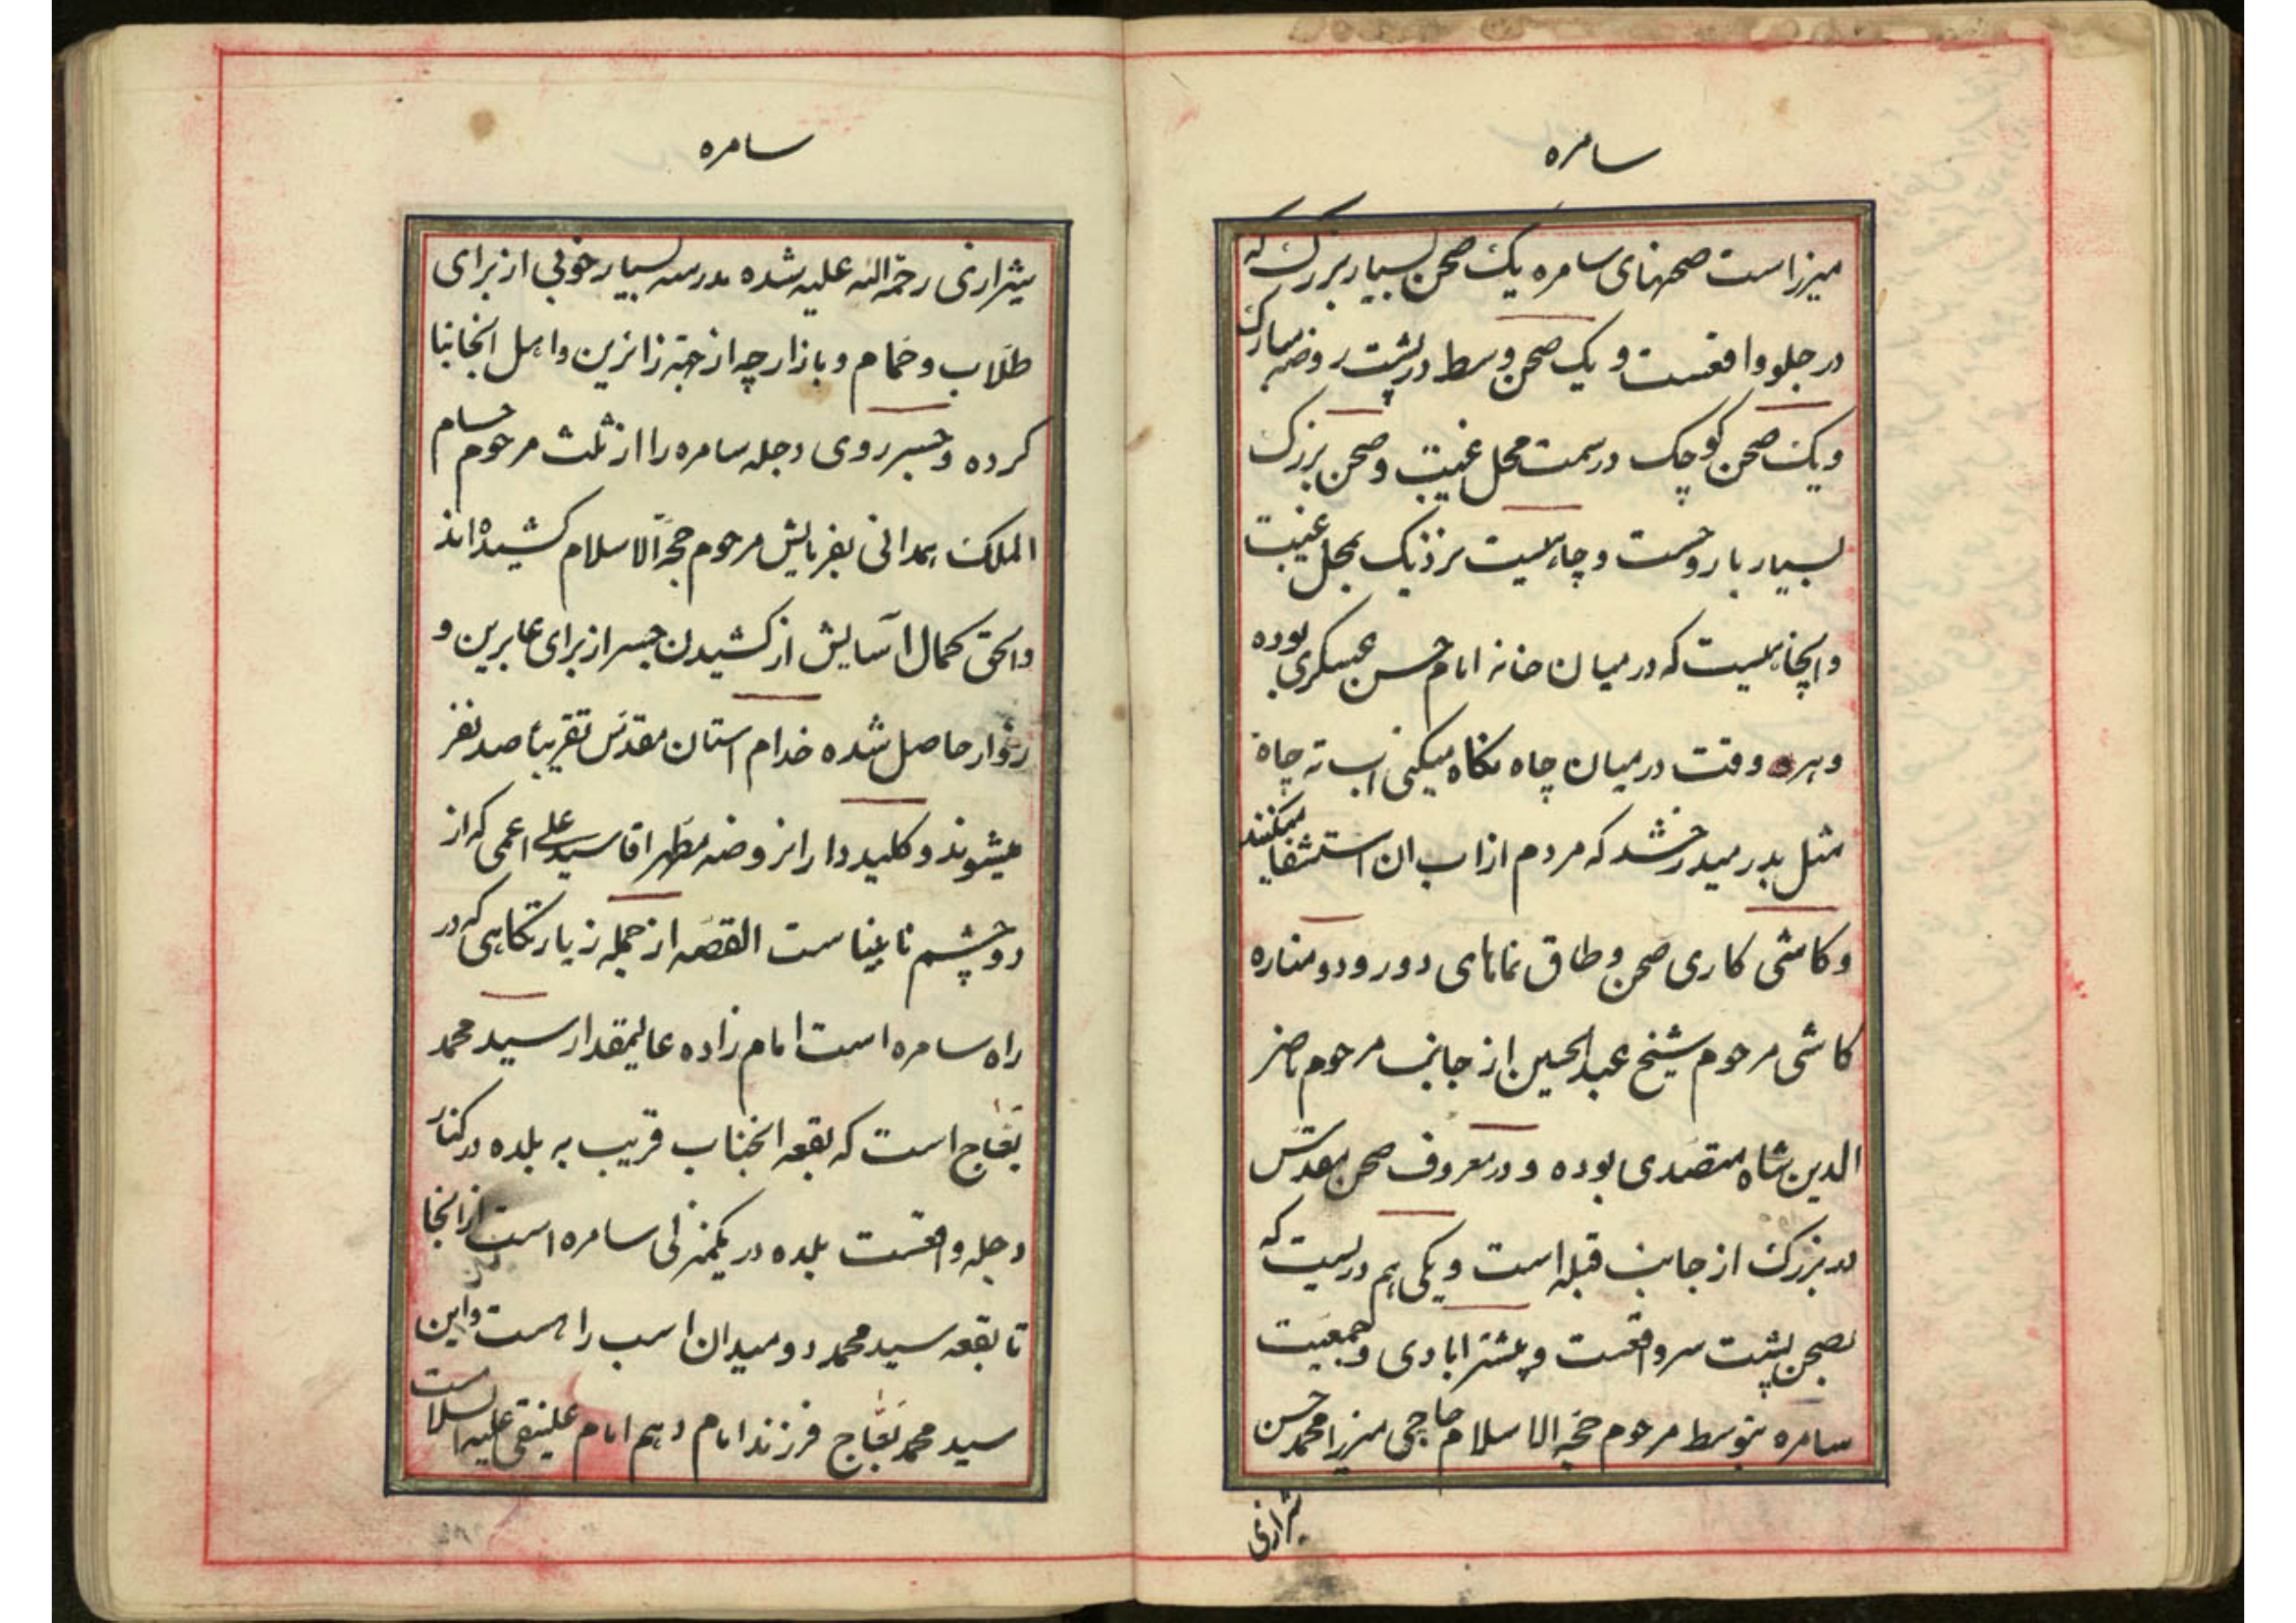 سامره
میرزاست صحنهای سامره یک صحن بسیار بزرگ که
در جلو واقعست و یک صحن وسط در پشت روضه مبارک
و یک صحن کوچک در سمت محل غیبت و صحن بزرگ
بسیار با روحست و چاهیست نزدیک بمحل غیبت
و اینجاهیست که در میان خانه امام حسن عسکری بوده
و هر وقت در میان چاه نگاه میکنی اب ته چاه
مثل بدر میدرخشد که مردم از اب ان استشفا میکنند
و کاشی کاری صحن و طاق نماهای دور و دو مناره
کاشی مرحوم شیخ عبدالحسین از جانب مرحوم ناصر
الدین شاه متصدی بوده و در معروف صحن مقدس
در بزرگ از جانب قبله است و یکی هم دریست که
بصحن پشت سر واقعست و بیشتر ابادی و جمعیت
سامره بتوسط مرحوم حجة الاسلام حاجی میرزا محمد حسن
شیرازی
سامره
شیرازی رحمة الله علیه شده مدرسه بسیار خوبی از برای
طلاب و حمام و بازارچه از جهة زائرین و اهل انجا بنا
کرده و جسر روی دجله سامره را از ثلث مرحوم حسام
الملک همدانی بفرمایش مرحوم حجة الاسلام کشیده‌اند
والحق کمال آسایش از کشیدن جسر از برای عابرین و
زوار حاصل شده خدام استان مقدس تقریباً صد نفر
میشوند و کلیددار انروضه مطهر اقا سید علی اعمی که از
دو چشم نابیناست القصه از جمله زیارتگاهی که در
راه سامره است امام زاده عالیمقدار سید محمد
بعاج است که بقعه انجناب قریب به بلده در کنار
دجله واقعست بلده در یکمنزلی سامره است از انجا
تا بقعه سید محمد دو میدان اسب راهست و این
سید محمد بعاج فرزند امام دهم امام علینقی علیه السلام است